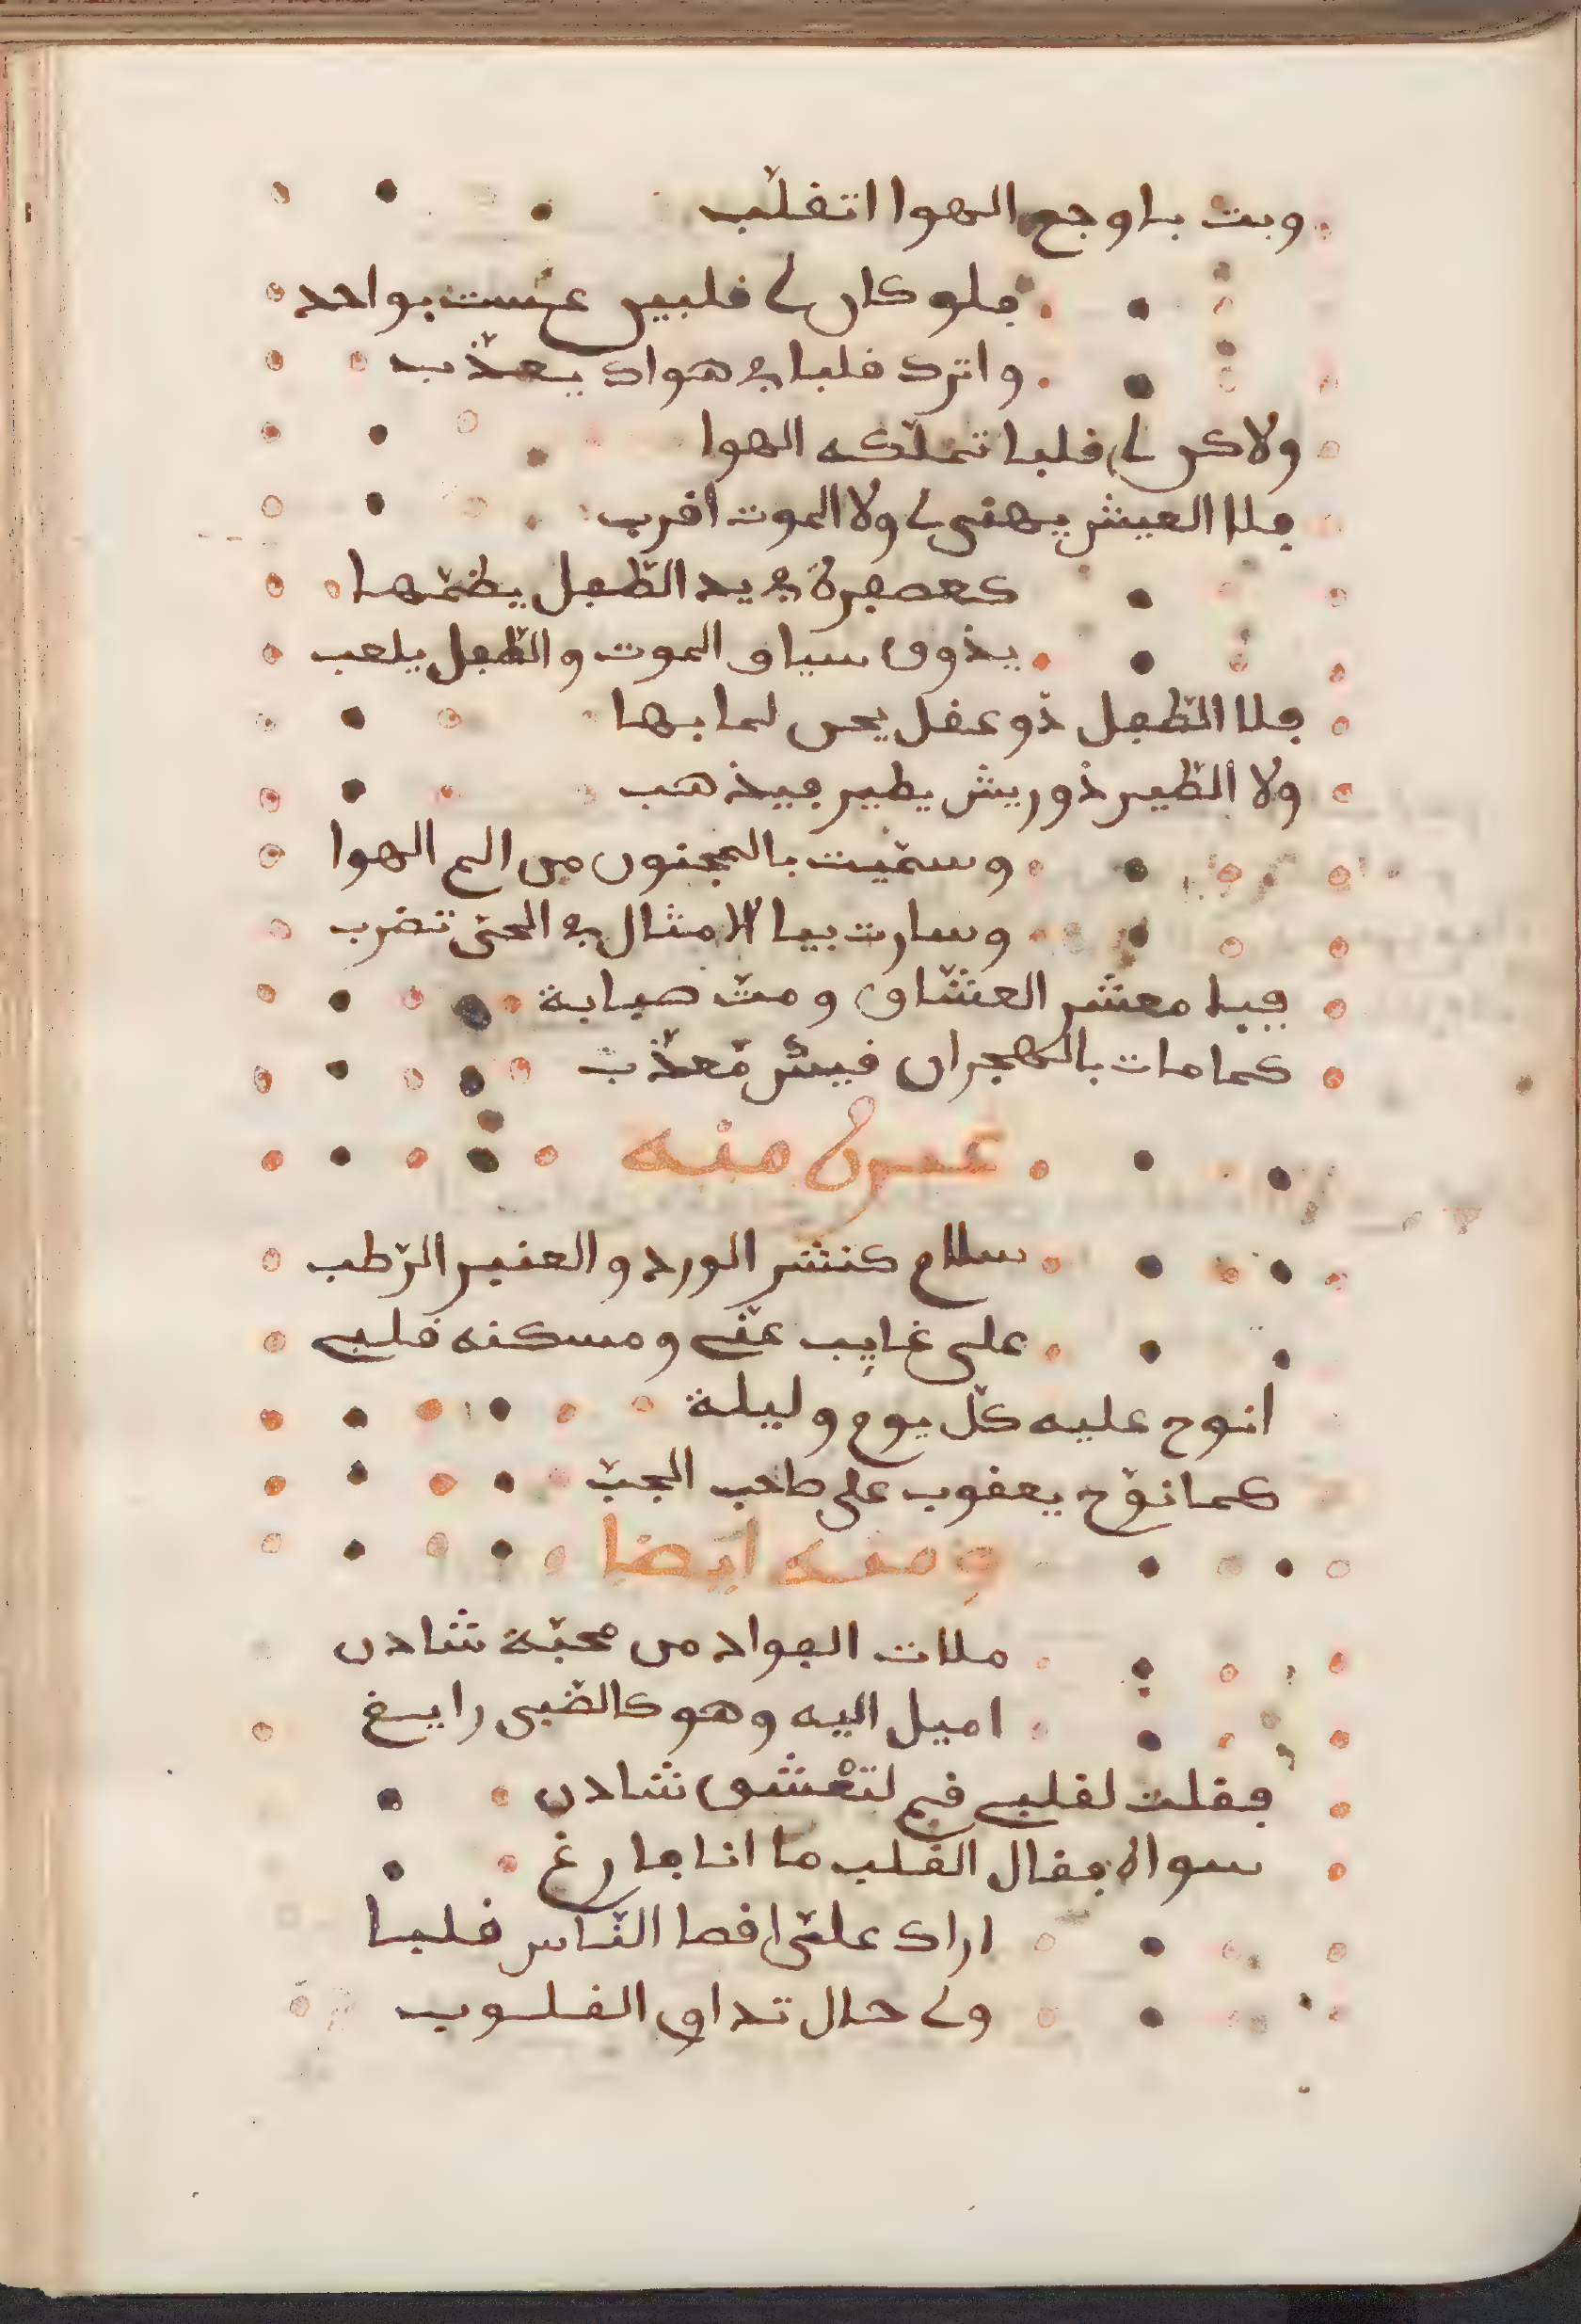 وبت باوجع الهوا اتقلّب
فلو كان لى قلبين عشت بواحد
واترك قلبا في هواك يعذّب
ولاكن لى قلبا تملّكه الهوا
فلا العيش يهنى لى ولا الموت اقرب
كعصفرة في يد الطّفل يظمّها
يذوق سياق الموت والطّفل يلعب
فلا الطّفل ذو عقل يحن لما بها
ولا الطّير ذو ريش يطير فيذهب
وسمّيت بالمجنون من الم الهوا
وسارت بيا الامثال في الحىّ تضرب
فيا معشر العشّاق ومتّ صبابة
كما مات بالهجران قيسٌ مّعذّب
غيره منه
سلام كنشر الورد والعنبر الرّطب
على غايب عنّى ومسكنه قلبى
انوح عليه كلّ يوم وليلة
كما نوّح يعقوب على صاحب الجبّ
ومنه ايضا
ملات الفواد من محبّة شادن
اميل اليه وهو كالضّبى رايغ
فقلت لقلبى قم لتعْشق شادن
سواه فقال القلب ما انا فارغ
اراك علىّ اقصا النّاس قلبا
ولى حال تداوى القلوب